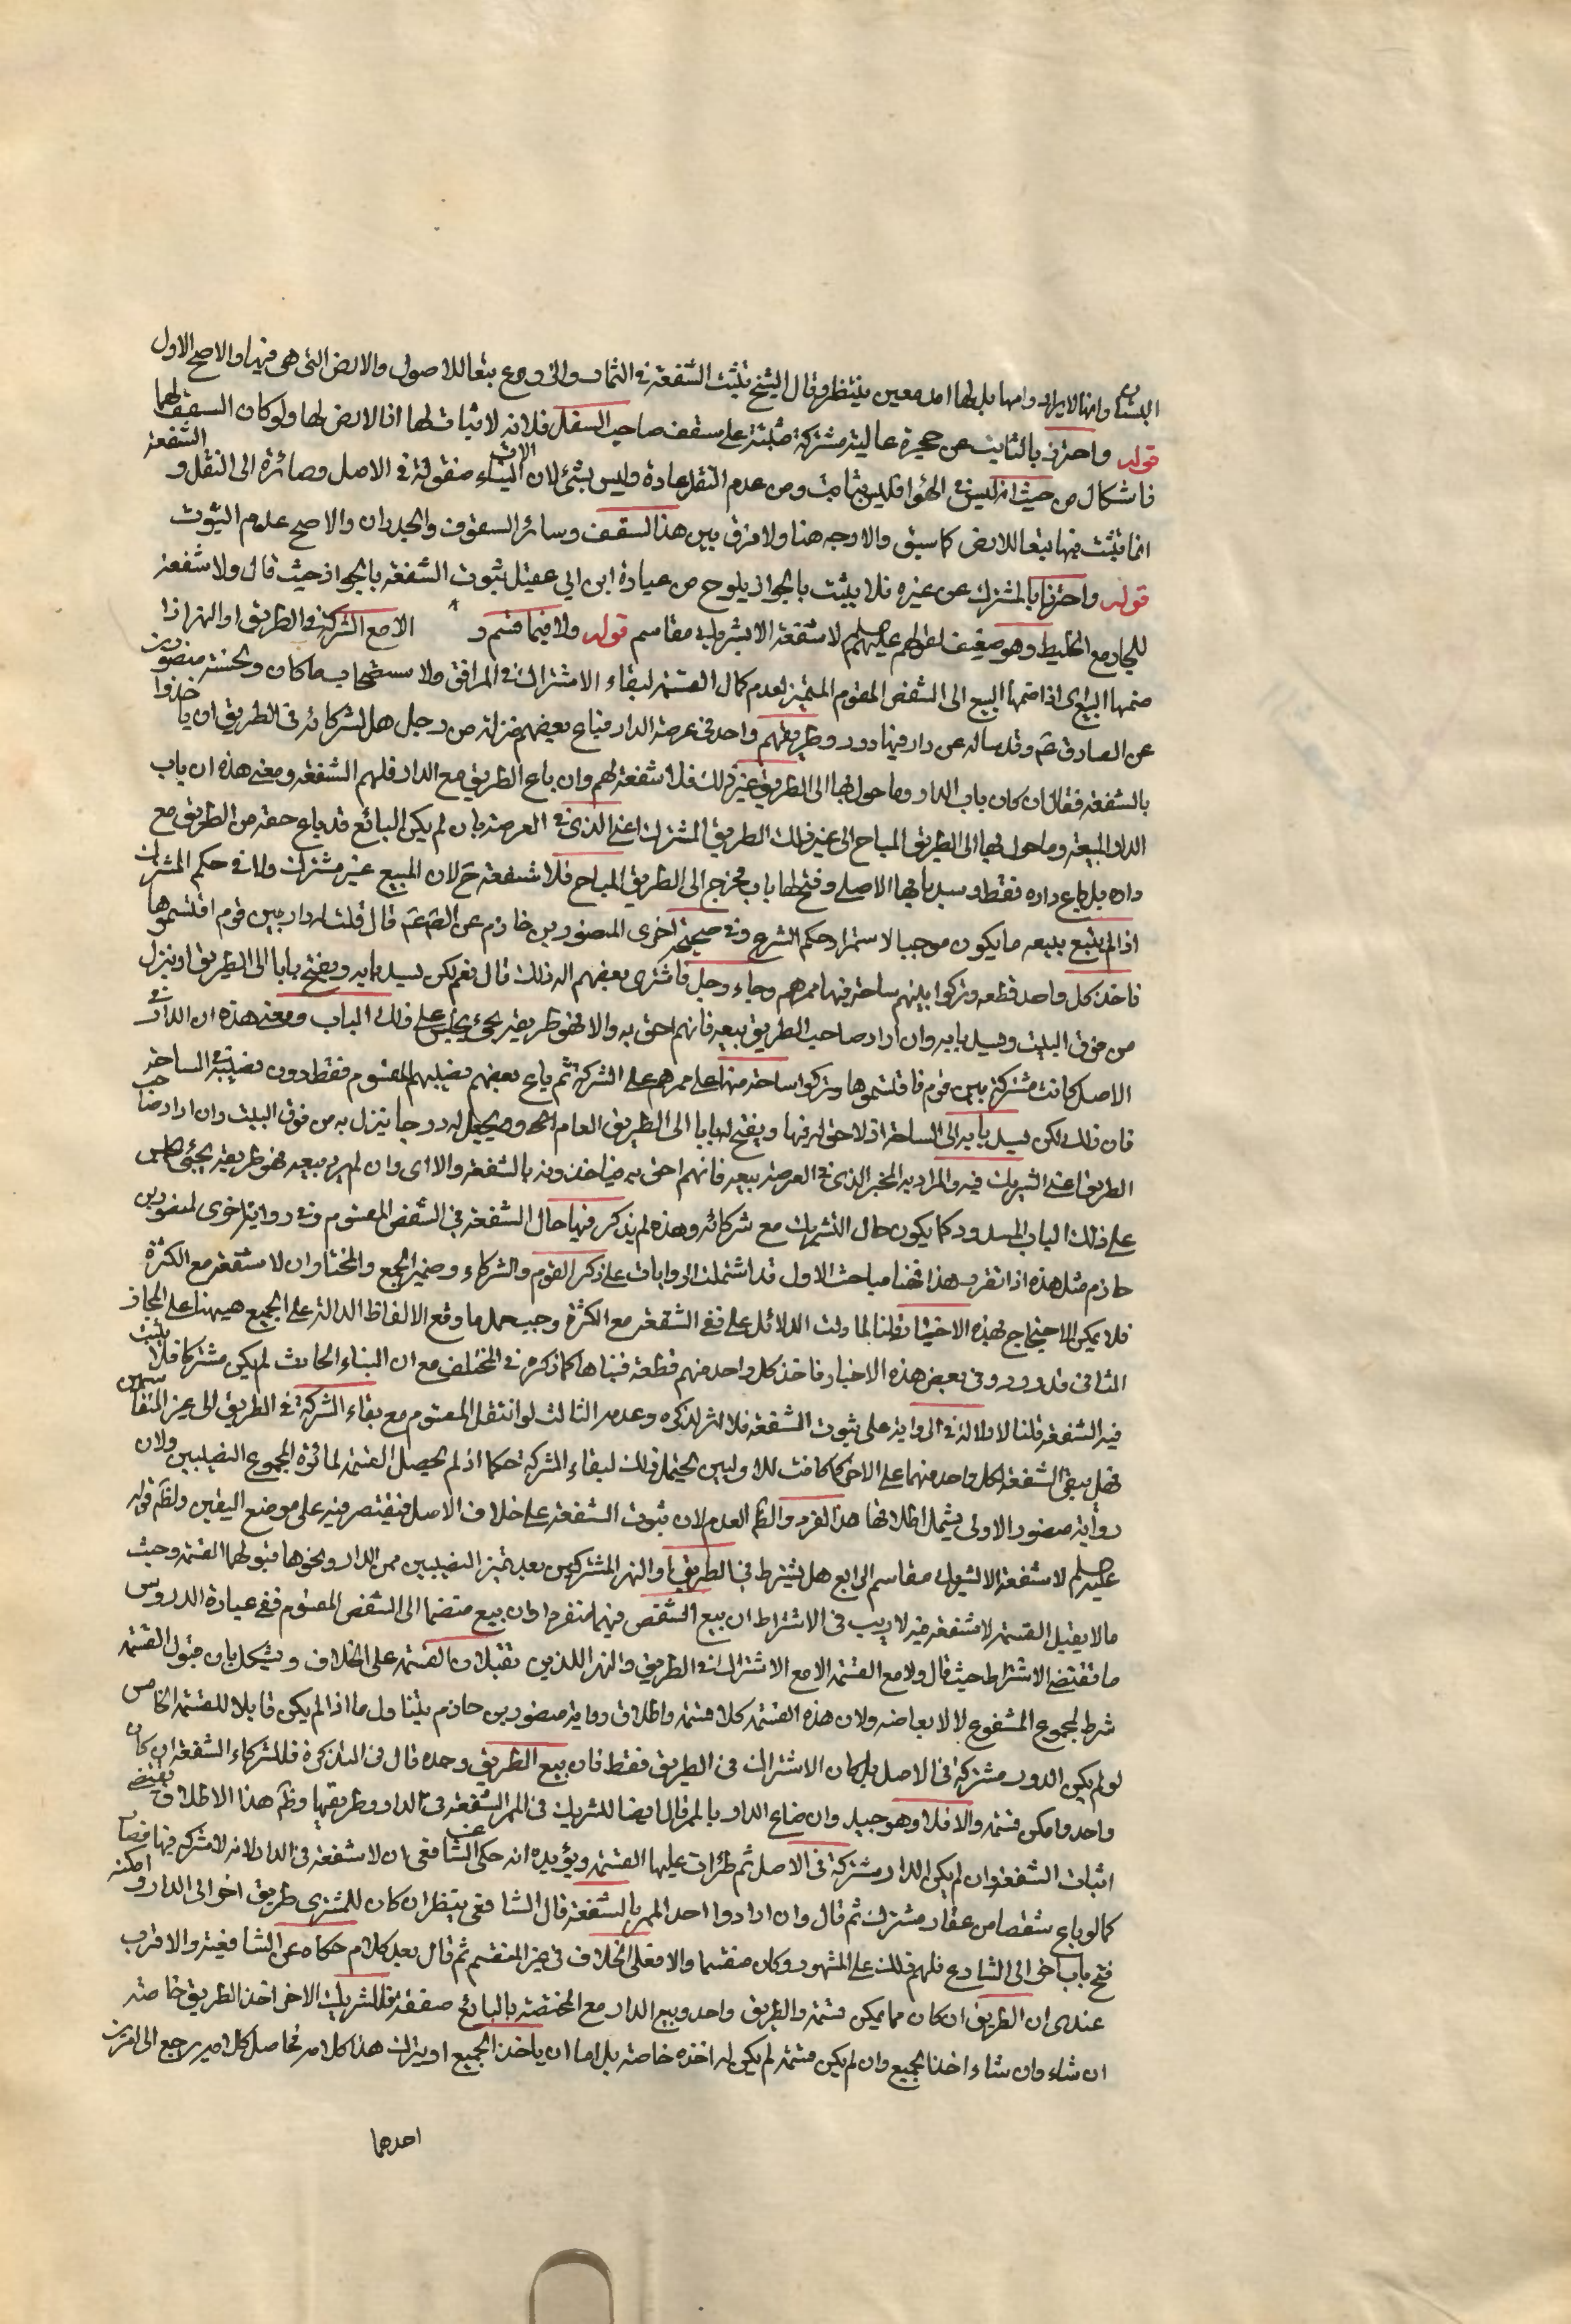 البستان وانها لا يراد دوامها بل لها امد معين ينتظر وقال الشيخ تثبت الشفعة في الثمار والزروع تبعا للاصول والارض التي هي فيها والاصح الاول
قوله واحترز بالثابت عن حجرة عالية مشتركة مبنية على سقف صاحب السفل فلانه لا ثبات لها اذ لا ارض لها ولو كان السقف لهما
فاشكال من حيث انه ليس في الهواء فليس بثابت ومن عدم النقل عادة وليس بشئ لان الابنية منقولة في الاصل وصائرة الى النقل و الشفعة
انما تثبت فيها تبعا للارض كما سبق والاوجه هنا ولا فرق بين هذا السقف وسائر السقوف والجدران والاصح عدم الثبوت
قوله واحترزنا بالمشترك عن غيره فلا يثبت بالجوار يلوح من عبارة ابن ابي عقيل ثبوت الشفعة بالجوار حيث قال ولا شفعة
للجار مع الخليط وهو ضعيف لقولهم عليهم السلم لا شفعة الا لشريك مقاسم قوله ولا فيما قسم و الا مع الشركة في الطريق او النهر اذا
ضمهما البيع اى اذا ضمهما البيع الى الشقص المقسوم المتميز لعدم كمال القسمة لبقاء الاشتراك في المرافق ولاستصحاب ما كان ولحسنة منصور
عن الصادق ع وقد ساله عن دار فيها دور وطريقهم واحد في عرصة الدار فباع بعضهم منزله من رجل هل لشركائه في الطريق ان ياخذوا
بالشفعة فقال ان كان باب الدار وما حول بابها الى الطريق غير ذلك فلا شفعة لهم وان باع الطريق مع الدار فلهم الشفعة ومعنى هذه ان باب
الدار المبيعة وما حول بها الى الطريق المباح الى غير ذلك الطريق المشترك اعنى الذى في العرصة بان لم يكن البائع قد باع حقه من الطريق مع
داره بل باع داره فقط وسد بابها الاصلى وفتح لها باب مخرج الى الطريق المباح فلا شفعة ح لان المبيع غير مشترك ولا في حكم المشترك
اذ لم يتبع ببيعه ما يكون موجبا لاستمرار حكم الشرع وفي صحيحة اخرى لمنصور بن حازم عن الص ع قال قلت له دار بين قوم اقتسموها
فاخذ كل واحد قطعة وتركوا بينهم ساحة فيها ممرهم وجاء رجل فاشترى بعضهم اله ذلك قال نعم لكن يسد بابه ويفتح بابا الى الطريق او ينزل
من فوق البيت ويسد بابه وان اراد صاحب الطريق بيعه فانهم احق به والا فهو طريقه يجئ يجلس على ذلك الباب ومعنى هذه ان الدار في
الاصل كانت مشتركة بين قوم فاقتسموها وتركوا ساحة منها على ممرهم على الشركة ثم باع بعضهم نصيبهم المقسوم فقط دون نصيبه في الساحة
فان ذلك لكن يسد بابه الى الساحة اذ لا حق له فيها ويفتح له بابا الى الطريق العام او يجعل له درجا ينزل به من فوق البيت وان اراد صاحب
الطريق اعنى الشريك فيه والمراد به المخبر الذى في العرصة بيعه فانهم احق به فياخذونه بالشفعة والا اى وان لم يرد بيعه فهو طريقه يجئ يجلس
على ذلك الباب المسدود كما يكون حال الشريك مع شركائه وهذه لم يذكر فيها حال الشفعة في الشقص المقسوم وفي رواية اخرى لمنصور بن
حازم مثل هذه اذا تقرر هذا فهنا مباحث الاول قد اشتملت الروايات على ذكر القوم والشركاء وضمير الجمع والمختار ان لا شفعة مع الكثرة
فلا يمكن الاحتجاج بهذه الاخبار قلنا لما دلت الدلائل على نفي الشفعة مع الكثرة وجب حمل ما وقع الالفاظ الدالة على الجمع هيهنا على المجاز
الثاني قد ورد في بعض هذه الاخبار فاخذ كل واحد منهم قطعة فبناها كما ذكره في المختلف مع ان البناء الحادث لم يكن مشتركا فلا يثبت
فيه الشفعة قلنا لا دلالة في الرواية على ثبوت الشفعة فلا اثر لذكره وعدمه الثالث لو انتقل المقسوم مع بقاء الشركة في الطريق الى غير المتقاسمين
فهل يبقى الشفعة لكل واحد منهما على الاخر كما كانت للاولين يحتمل ذلك لبقاء الشركة حكما اذ لم تحصل القسمة لمائزة لمجموع النصيبين ولان
رواية منصور الاولى يشمل اطلاقها هذا الفرد والظ العدم لان ثبوت الشفعة على خلاف الاصل فيقتصر فيه على موضع اليقين ولظ قوله
عليه السلم لا شفعة الا لشريك مقاسم الرابع هل يشترط في الطريق او النهر المشتركين بعد تميز النصيبين من الدار ونحوها قبولهما القسمة وحيث
ما لا يقبل القسمة لا شفعة فيه لا ريب في الاشتراط ان بيع الشقص فيهما منفردا وان بيع منضما الى الشقص المقسوم ففي عبارة الدروس
ما تقتضى الاشتراط حيث قال ولا مع القسمة الا مع الاشتراك في الطريق والنهر اللذين تقبلان القسمة على الخلاف ويشكل بان قبول القسمة
شرط لمجموع المشفوع لا لابعاضه ولان هذه القسمة كلا قسمة واطلاق رواية منصور بن حازم يتناول ما اذا لم يكن قابلا للقسمة الخامس
لو لم يكن الدور مشتركة في الاصل بل كان الاشتراك في الطريق فقط فان بيع الطريق وحده قال في التذكرة فللشركاء الشفعة ان كان
واحدا وامكن قسمته والا فلا وهو جيد وان ضاع الدار بالممر قال ايضا للشريك في الممر الشفعة في الدار وطريقها وظ هذا الاطلاق يقتضي
اثبات الشفعة وان لم يكن الدار مشتركة في الاصل ثم طرأت عليها القسمة ويؤيده انه حكى عن الشافعي ان لا شفعة في الدار لانه لا شركة فيها فصار
كما لو باع شقصا من عقار مشترك ثم قال وان ارادوا احد الممر بالشفعة قال الشافعي ينتظر ان كان للمشترى طريق اخر الى الدار وامكنه
فتح باب اخر الى الشارع فلهم ذلك على المشهور وكان منقسما والا فعلى الخلاف في غير المنقسم ثم قال بعد كلام حكاه عن الشافعية والاقرب
عندى ان الطريق ان كان مما يمكن قسمته والطريق واحد وبيع الدار مع المختصة بالبائع صفقة فللشريك الاخر اخذ الطريق خاصة
ان شاء وان شاء اخذ الجميع وان لم يكن قسمته لم يكن له اخذه خاصة بل اما ان ياخذ الجميع او يترك هذا كلامه فحاصل كلامه يرجع الى امرين
احدهما